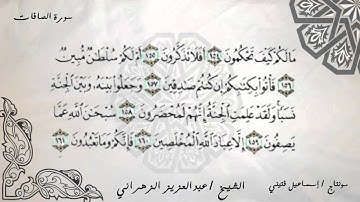 سورة الصافات
مَا لَكُمْ كَيْفَ تَحْكُمُونَ ١٥٤ أَفَلَا تَذَكَّرُونَ ١٥٥ أَمْ لَكُمْ سُلْطَٰنٌ مُّبِينٌ
١٥٦ فَأْتُوا۟ بِكِتَٰبِكُمْ إِن كُنتُمْ صَٰدِقِينَ ١٥٧ وَجَعَلُوا۟ بَيْنَهُۥ وَبَيْنَ ٱلْجِنَّةِ
نَسَبًا ۚ وَلَقَدْ عَلِمَتِ ٱلْجِنَّةُ إِنَّهُمْ لَمُحْضَرُونَ ١٥٨ سُبْحَٰنَ ٱللَّهِ عَمَّا
يَصِفُونَ ١٥٩ إِلَّا عِبَادَ ٱللَّهِ ٱلْمُخْلَصِينَ ١٦٠ فَإِنَّكُمْ وَمَا تَعْبُدُونَ ١٦١
الشيخ / عبدالعزيز الزهراني
مونتاج / إسماعيل فتيني